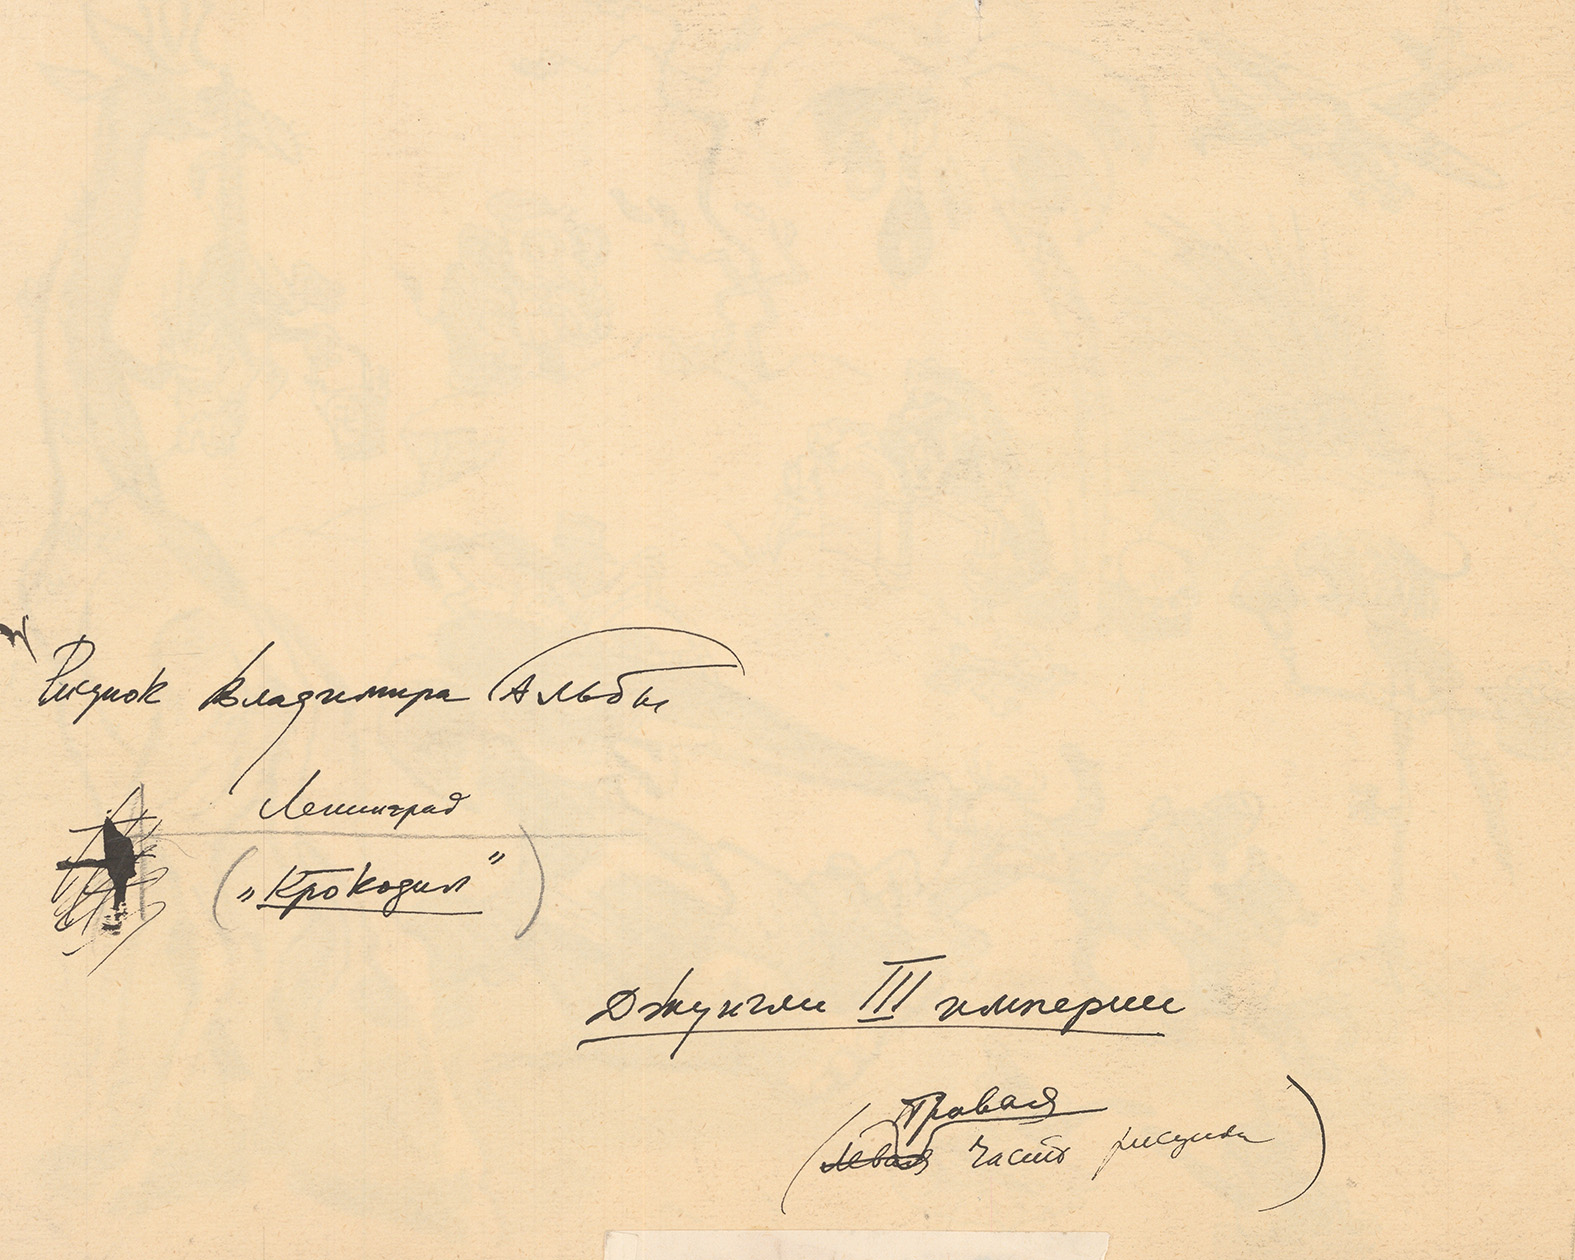 Рисунок Владимира Альбы
Ленинград
(„Крокодил”)
Джунгли III империи
Правая
(левая часть рисунка)